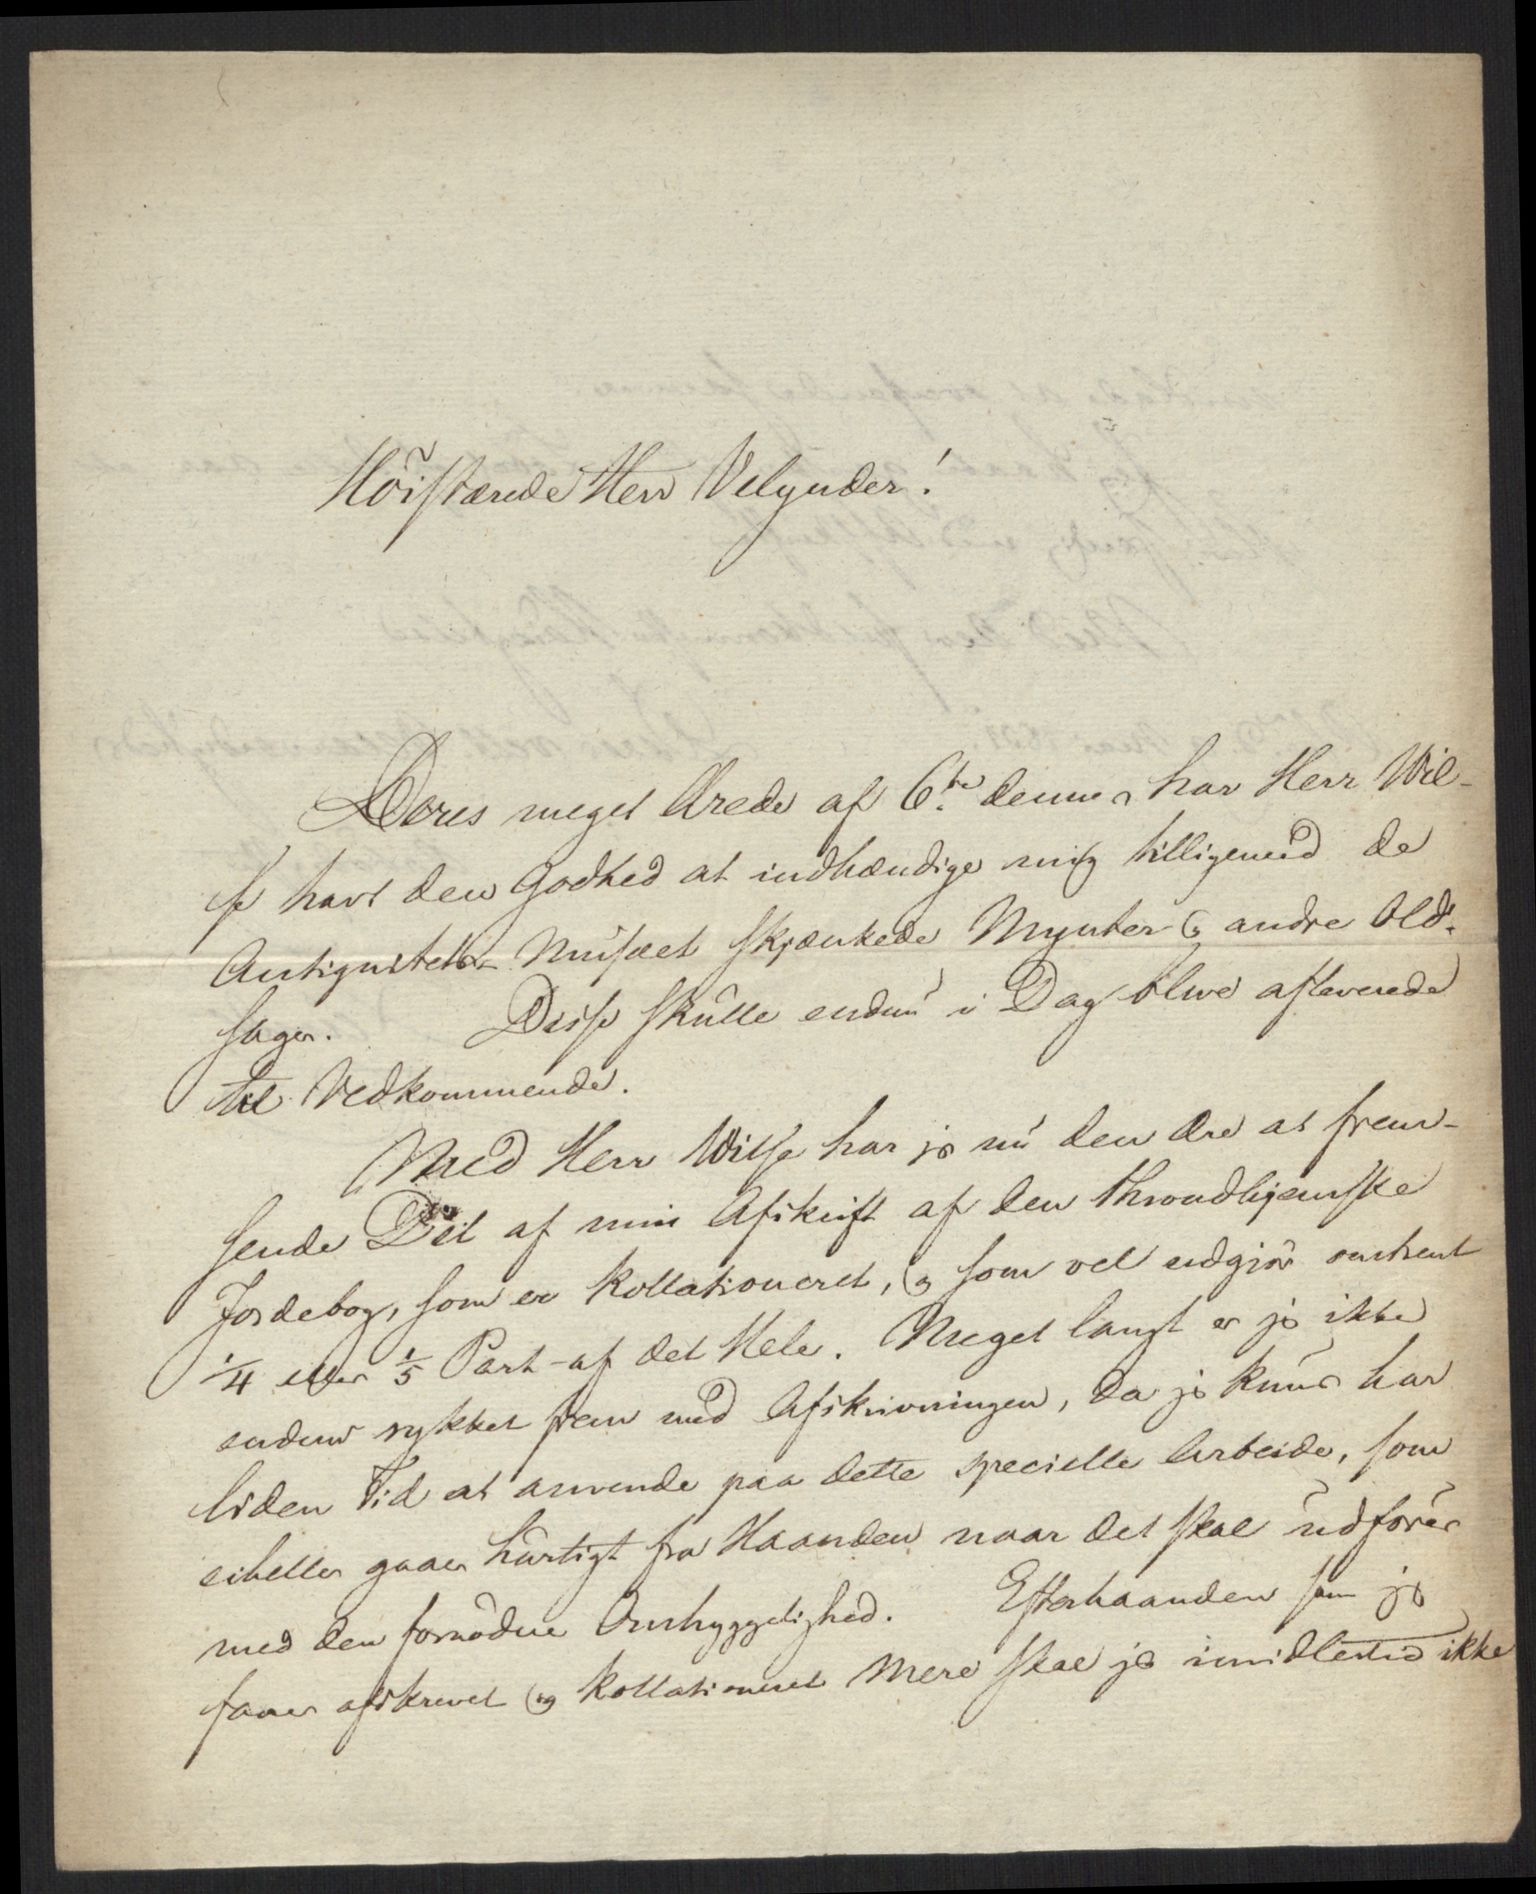 Höistærede Herr Velynder!
Deres meget Ærede af 6te dennes har Herr Wil-
se havt den Godhed at indhændige mig tilligemed de
Antiqvitets-Musæet skjænkede Mynter og andre Old-
sager. Disse skulle endnu i Dag blive afleverede
til Vedkommende.
Med Herr Wilse har jeg nu den Ære at frem-
sende Det af min Afskrift af den throndhjemske
Jordebog, som er kollationeret, og som vel udgjör omtrent
1/4 eller 1/5 Part af det Hele. Meget langt er jeg ikke
endnu rykket frem med Afskrivningen, da jeg kuns har
liden Tid at anvende paa dette specielle Arbeide, som
eiheller gaaer hurtigt fra Haanden naar det skal udföres
med den fornödne Omhyggelighed. Efterhaanden som jeg
faaer afskrevet og kollationeret Mere skal jeg imidlertid ikke